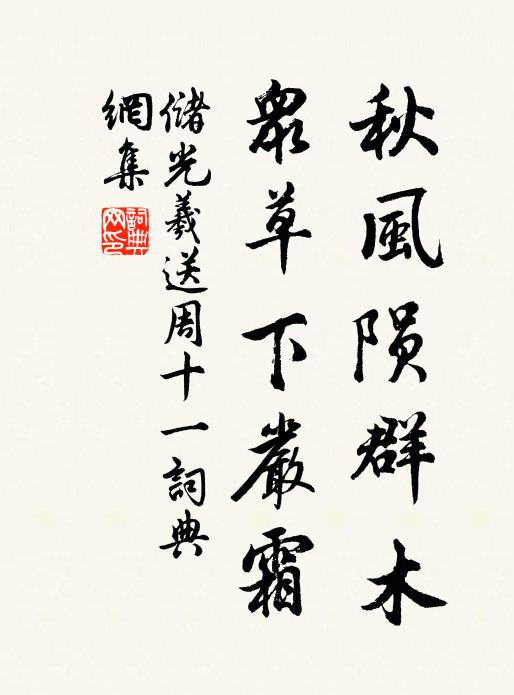 秋風陨群木
眾草下嚴霜
儲光羲送周十一詞典
網集
詞典网印